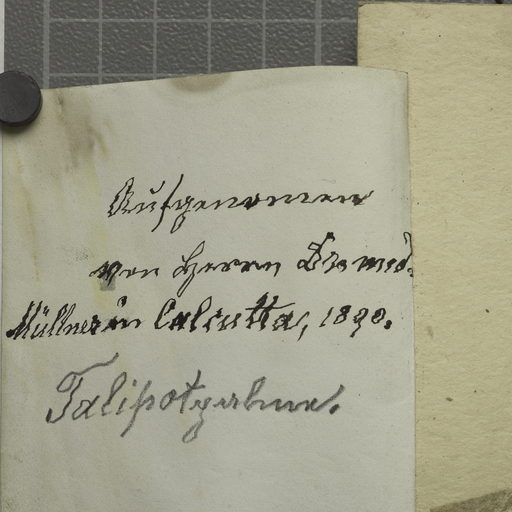 Aufgenommen
von Herrn Dr. med.
Müller in Calcutta, 1890.
Talipotpalme.